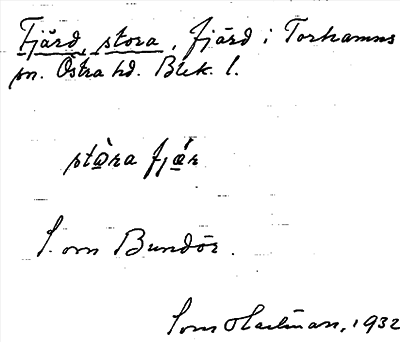 Fjärd, stora, fjärd i Torhamns
sn. Östra hd. Blek. l.
stòra fjǽr
S. om Bundör.
Hartman, 1932